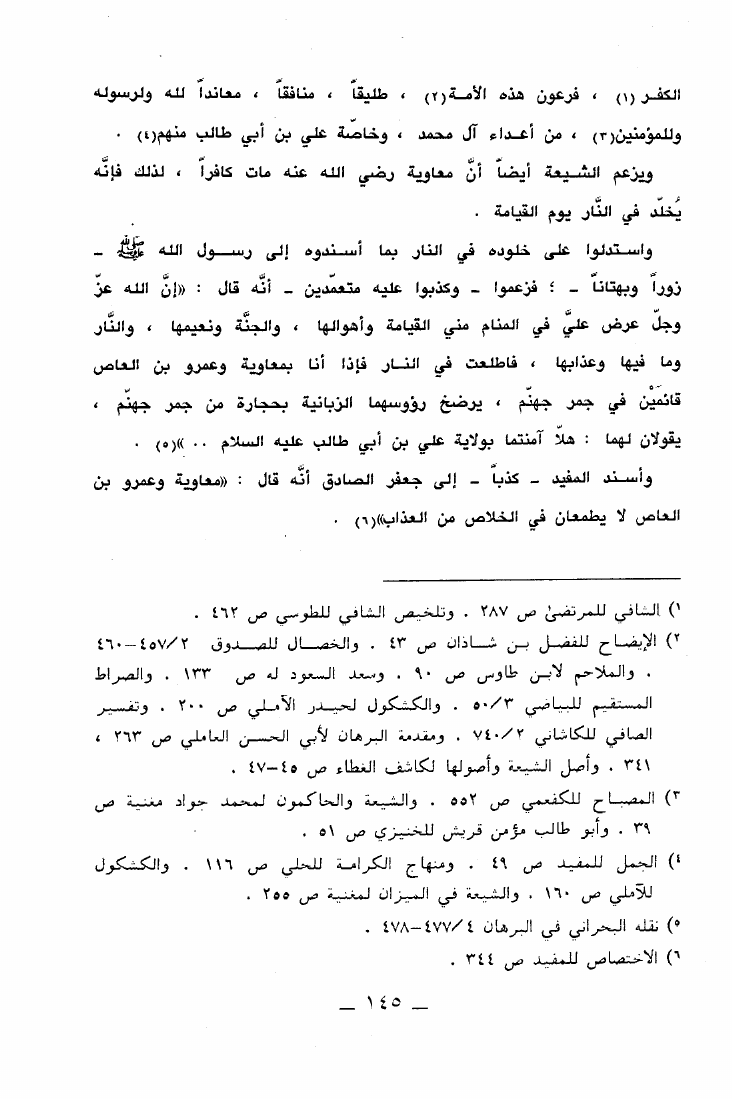 الكفر(١) ، فرعون هذه الأمة(٢) ، طليقاً ، منافقاً ، معانداً لله ولرسوله
وللمؤمنين(٣) ، من أعداء آل محمد ، وخاصّة علي بن أبي طالب منهم(٤) .
ويزعم الشيعة أيضاً أنَّ معاوية رضي الله عنه مات كافراً ، لذلك فإنَّه
يُخلّد في النَّار يوم القيامة .
واستدلوا على خلوده في النار بما أسندوه إلى رسول الله ﷺ –
زوراً وبهتاناً – ؛ فزعموا – وكذبوا عليه متعمّدين – أنَّه قال : «إنَّ الله عزّ
وجلّ عرض عليَّ في المنام مني القيامة وأهوالها ، والجنَّة ونعيمها ، والنَّار
وما فيها وعذابها ، فاطلعت في النار فإذا أنا بمعاوية وعمرو بن العاص
قائمَيْن في جمر جهنّم ، يرضخ رؤوسهما الزبانية بحجارة من جمر جهنّم ،
يقولان لهما : هلّا آمنتما بولاية علي بن أبي طالب عليه السلام .. »(٥) .
وأسند المفيد – كذباً – إلى جعفر الصادق أنَّه قال : «معاوية وعمرو بن
العاص لا يطمعان في الخلاص من العذاب»(٦) .
١) الشافي للمرتضىٰ ص ٢٨٧ . وتلخيص الشافي للطوسي ص ٤٦٢ .
٢) الإيضاح للفضل بن شاذان ص ٤٣ . والخصال للصدوق ٤٥٧/٢–٤٦٠
. والملاحم لابن طاوس ص ٩٠ . وسعد السعود له ص ١٣٣ . والصراط
المستقيم للبياضي ٥٠/٣ . والكشكول لحيدر الآملي ص ٢٠٠ . وتفسير
الصافي للكاشاني ٧٤٠/٢ . ومقدمة البرهان لأبي الحسن العاملي ص ٢٦٣ ،
٣٤١ . وأصل الشيعة وأصولها لكاشف الغطاء ص ٤٥–٤٧ .
٣) المصباح للكفعمي ص ٥٥٢ . والشيعة والحاكمون لمحمد جواد مغنية ص
٣٩ . وأبو طالب مؤمن قريش للخنيزي ص ٥١ .
٤) الجمل للمفيد ص ٤٩ . ومنهاج الكرامة للحلي ص ١١٦ . والكشكول
للآملي ص ١٦٠ . والشيعة في الميزان لمغنية ص ٢٥٥ .
٥) نقله البحراني في البرهان ٤٧٧/٤–٤٧٨ .
٦) الاختصاص للمفيد ص ٣٤٤ .
– ١٤٥ –